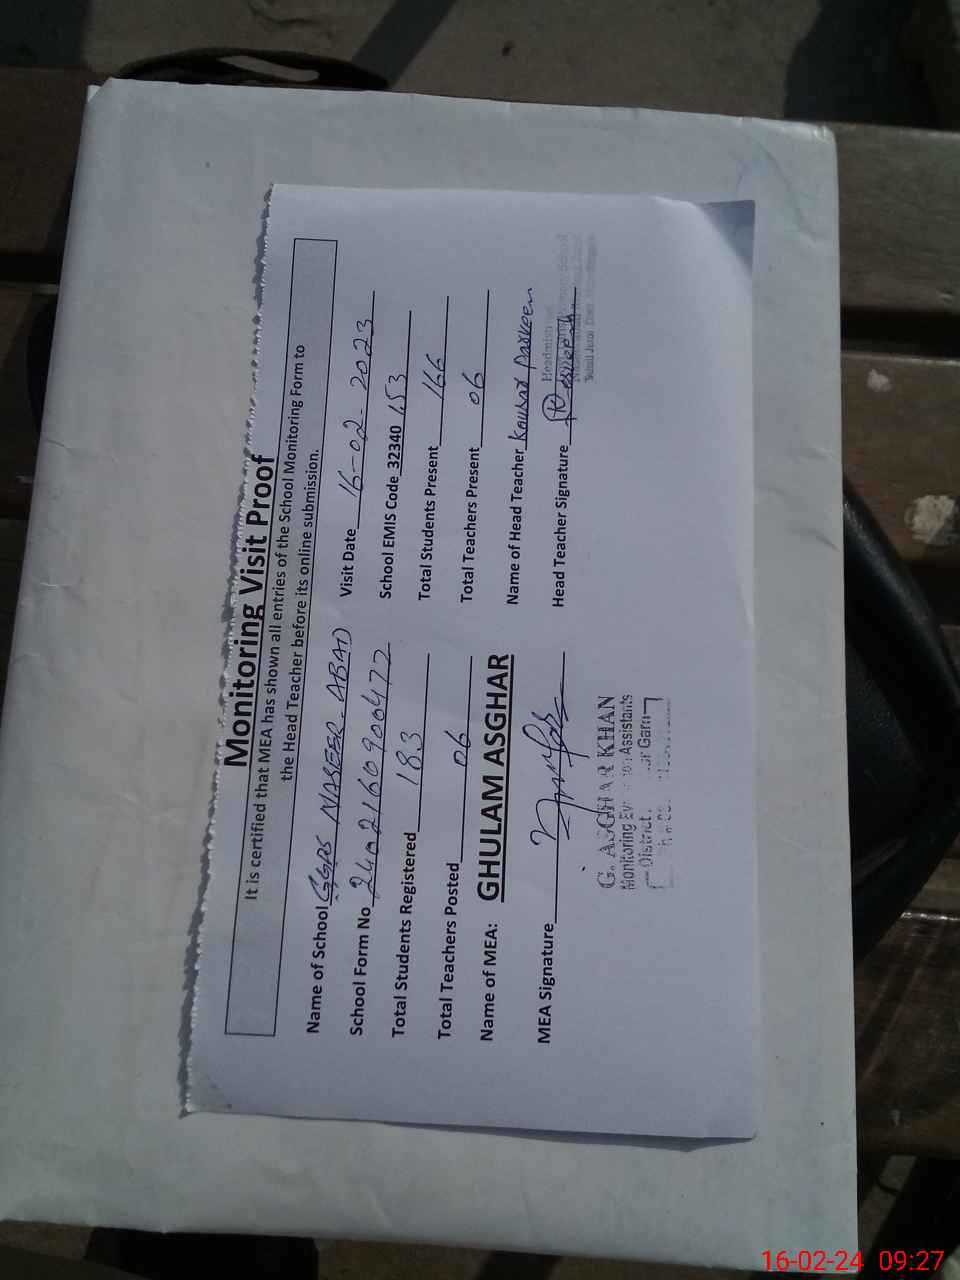 Monitoring Visit Proof
It is certified that MEA has shown all entries of the School Monitoring Form to
the Head Teacher before its online submission.
Name of School GGPS NASEER-ABAD Visit Date 16-02-2023
School Form No 24021609006477 School EMIS Code 32340153
Total Students Registered 183 Total Students Present 166
Total Teachers Posted 06 Total Teachers Present 06
Name of MEA: GHULAM ASGHAR Name of Head Teacher Kausar Parveen
MEA Signature Head Teacher Signature
G. ASGHAR KHAN
Monitoring Assistants
District
16-02-24 09:27